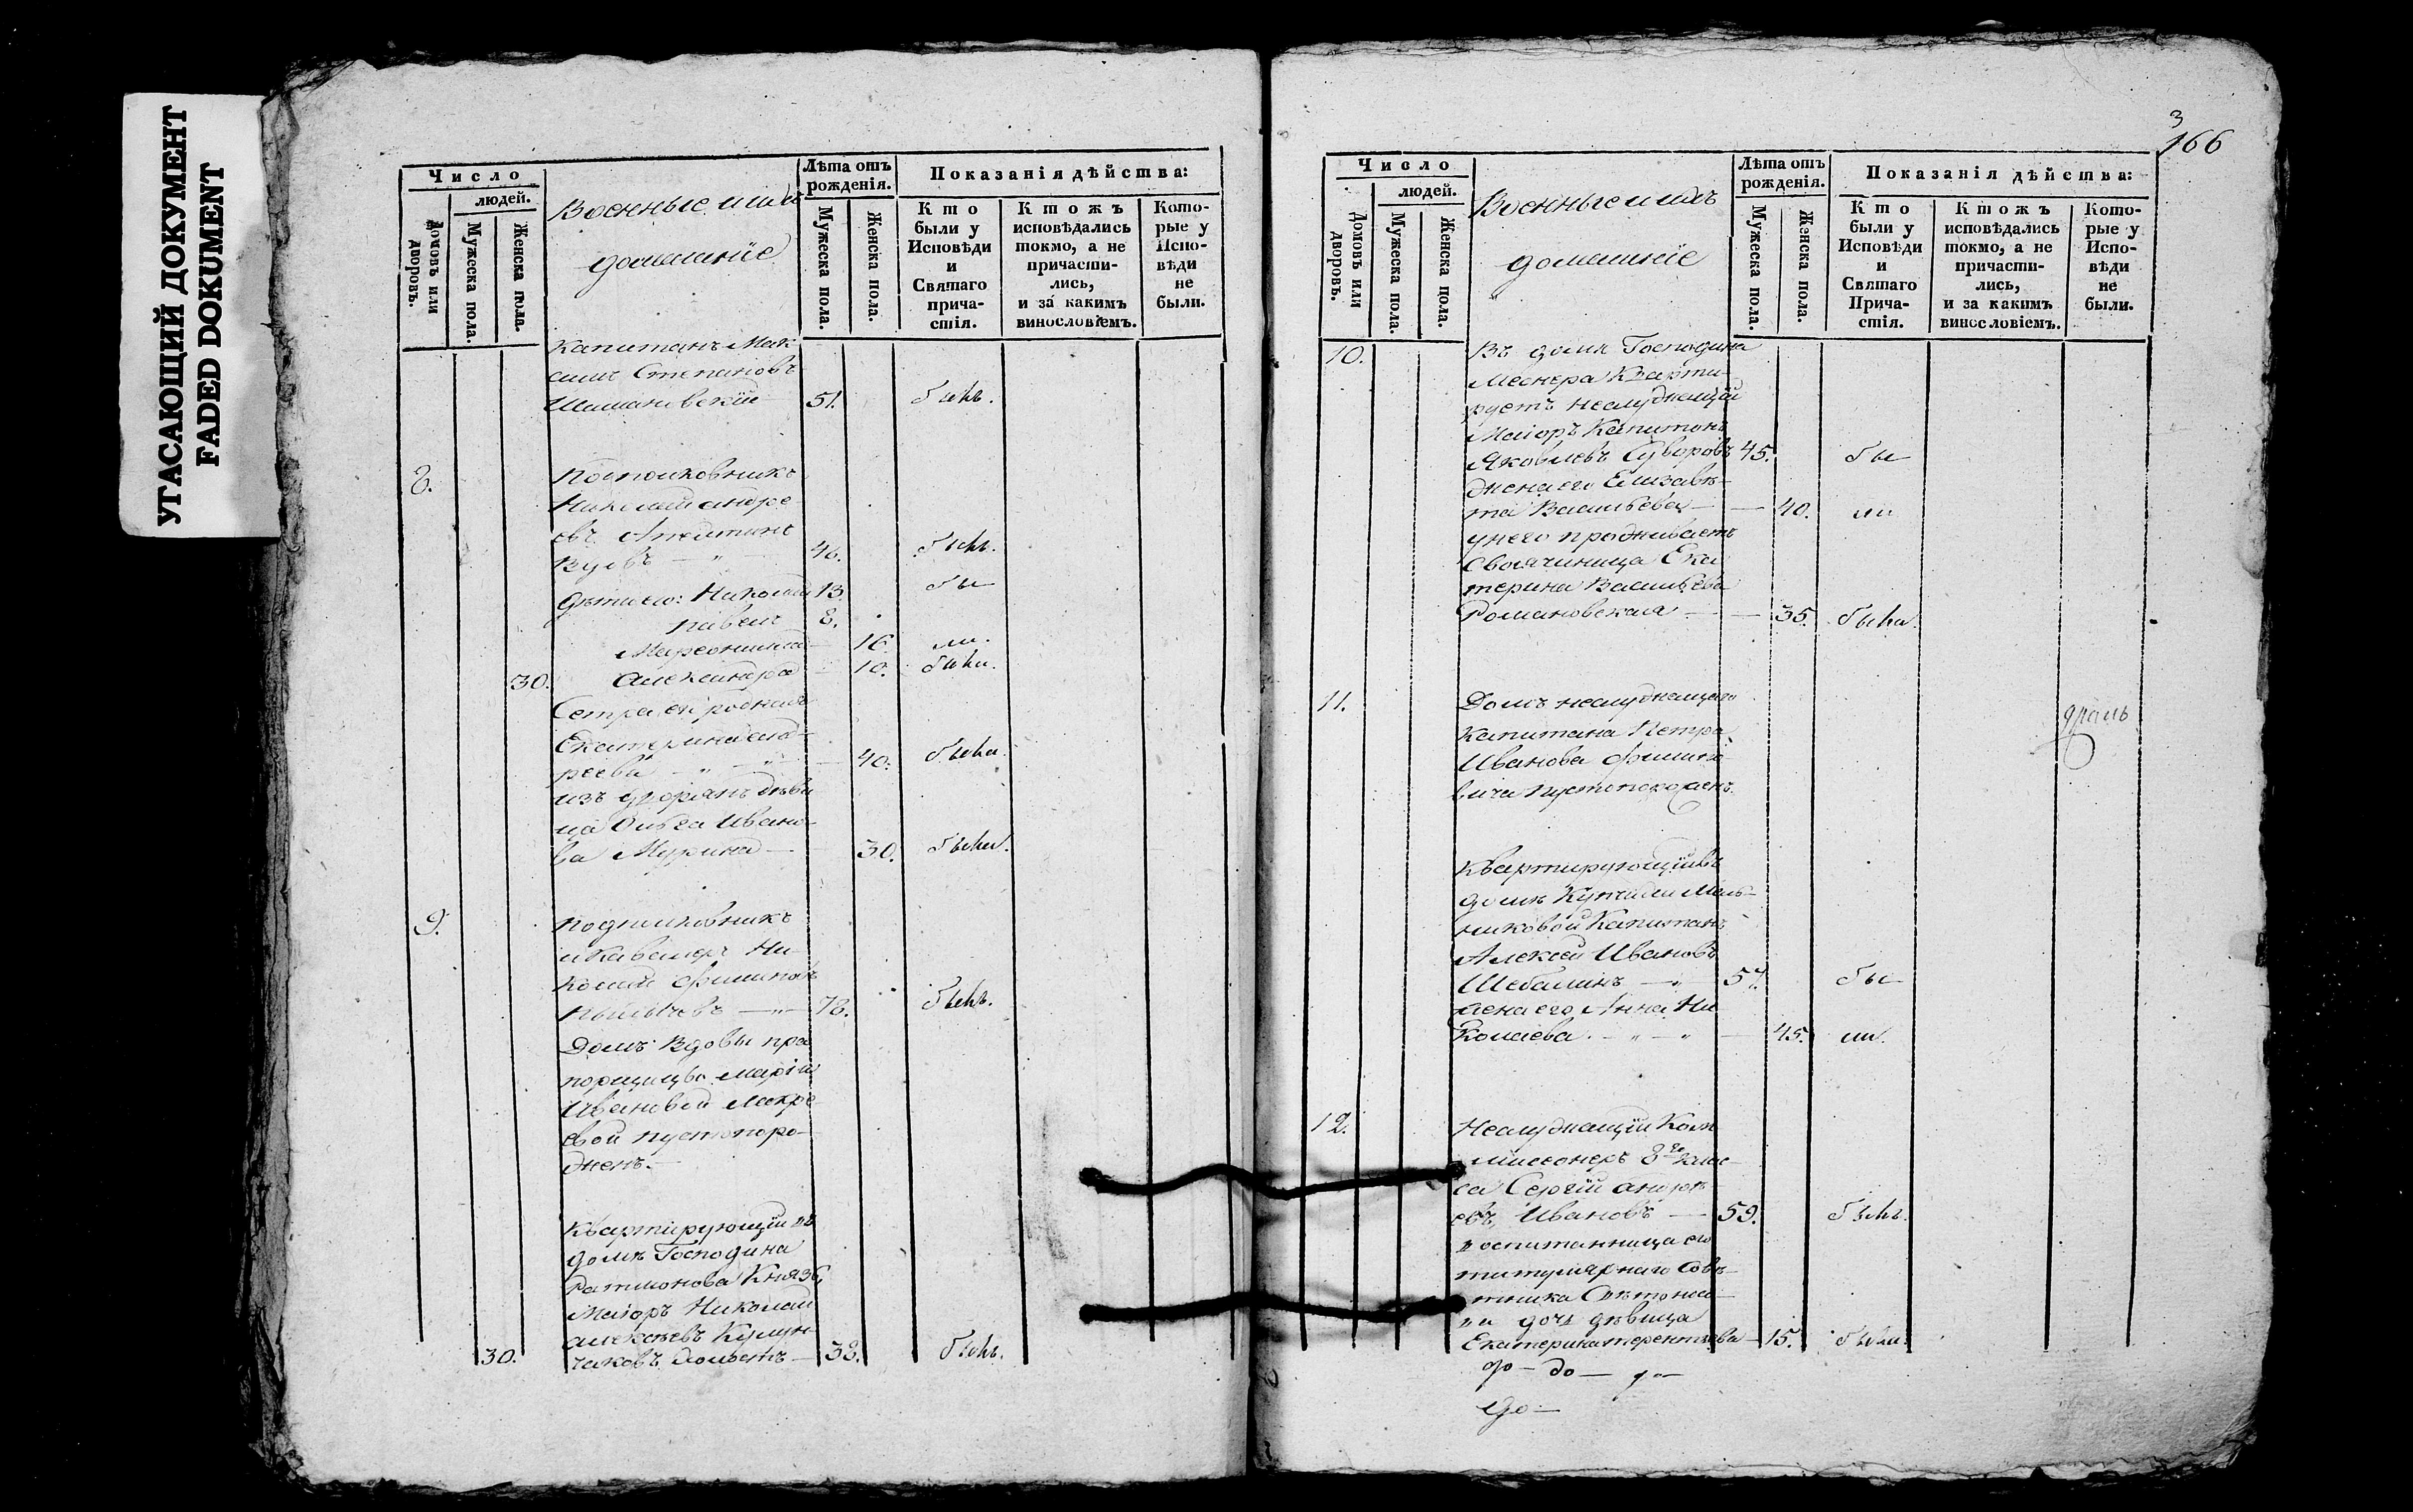 УГАСАЮЩИЙ ДОКУМЕНТ
FADED DOKUMENT
Число
людей.
Домовъ или дворовъ.
Мужеска пола.
Женска пола.
Военные и ихъ
домашніе
Лѣта отъ рожденія.
Мужеска пола.
Женска пола.
Показанія дѣйства:
Кто были у Исповѣди и Святаго причастія.
Ктожъ исповѣдались токмо, а не причастились, и за какимъ винословіемъ.
Которые у Исповѣди не были.
Капитанъ Мак
симъ Степановъ
51. былъ.
8. Подполковникъ
Николай андре
евъ
46. былъ.
дѣти его: Николай 13. бы
павелъ 8.
16. ли.
30. александра 10. были.
Сестра его родная
Екатерина анд
реева 40. была.
изъ дворянъ дѣви
ца Ольга Ивано
ва Мурина 30. была.
9. Подполковникъ
и Кавалеръ Ни
колай Филиповъ
78. былъ.
Домъ вдовы пра
порщицы Маріи
Ивановой Макре
евой пустопоро
женъ.
Квартирующій въ
домѣ Господина
Ратионова Князь
Маіоръ Николай
алексѣевъ
30. холостъ 38. былъ.
3
166
Число
людей.
Домовъ или дворовъ.
Мужеска пола.
Женска пола.
Военные и ихъ
домашніе
Лѣта отъ рожденія.
Мужеска пола.
Женска пола.
Показанія дѣйства:
Кто были у Исповѣди и Святаго Причастія.
Ктожъ исповѣдались токмо, а не причастились, и за какимъ винословіемъ.
Которые у Исповѣди не были.
10. Въ домѣ Господина
Меснера Кварти
руетъ неслужащій
Маіоръ Капитонъ
Яковлевъ Суворовъ 45. бы
жена его Елизавѣ
та Васильева 40. ли
у него проживаетъ
Своячиница Ека
терина Васильева
Романовская 35. была.
11. Домъ неслужащаго
капитана Петра
Иванова Филипо
вича пустопороженъ.
Квартирующій въ
домѣ Купчихи Мель
никовой Капитанъ
Алексѣй Ивановъ
Шебалинъ 57. бы
жена его Анна Ни
колаева 45. ли.
12. Неслужащій Ком
миссіонеръ 8го клас
са Сергій андре
евъ Ивановъ 59. былъ.
воспитанница его
титулярнаго Совѣ
тника
дочь дѣвица
Екатерина терентьева 15. была.
до